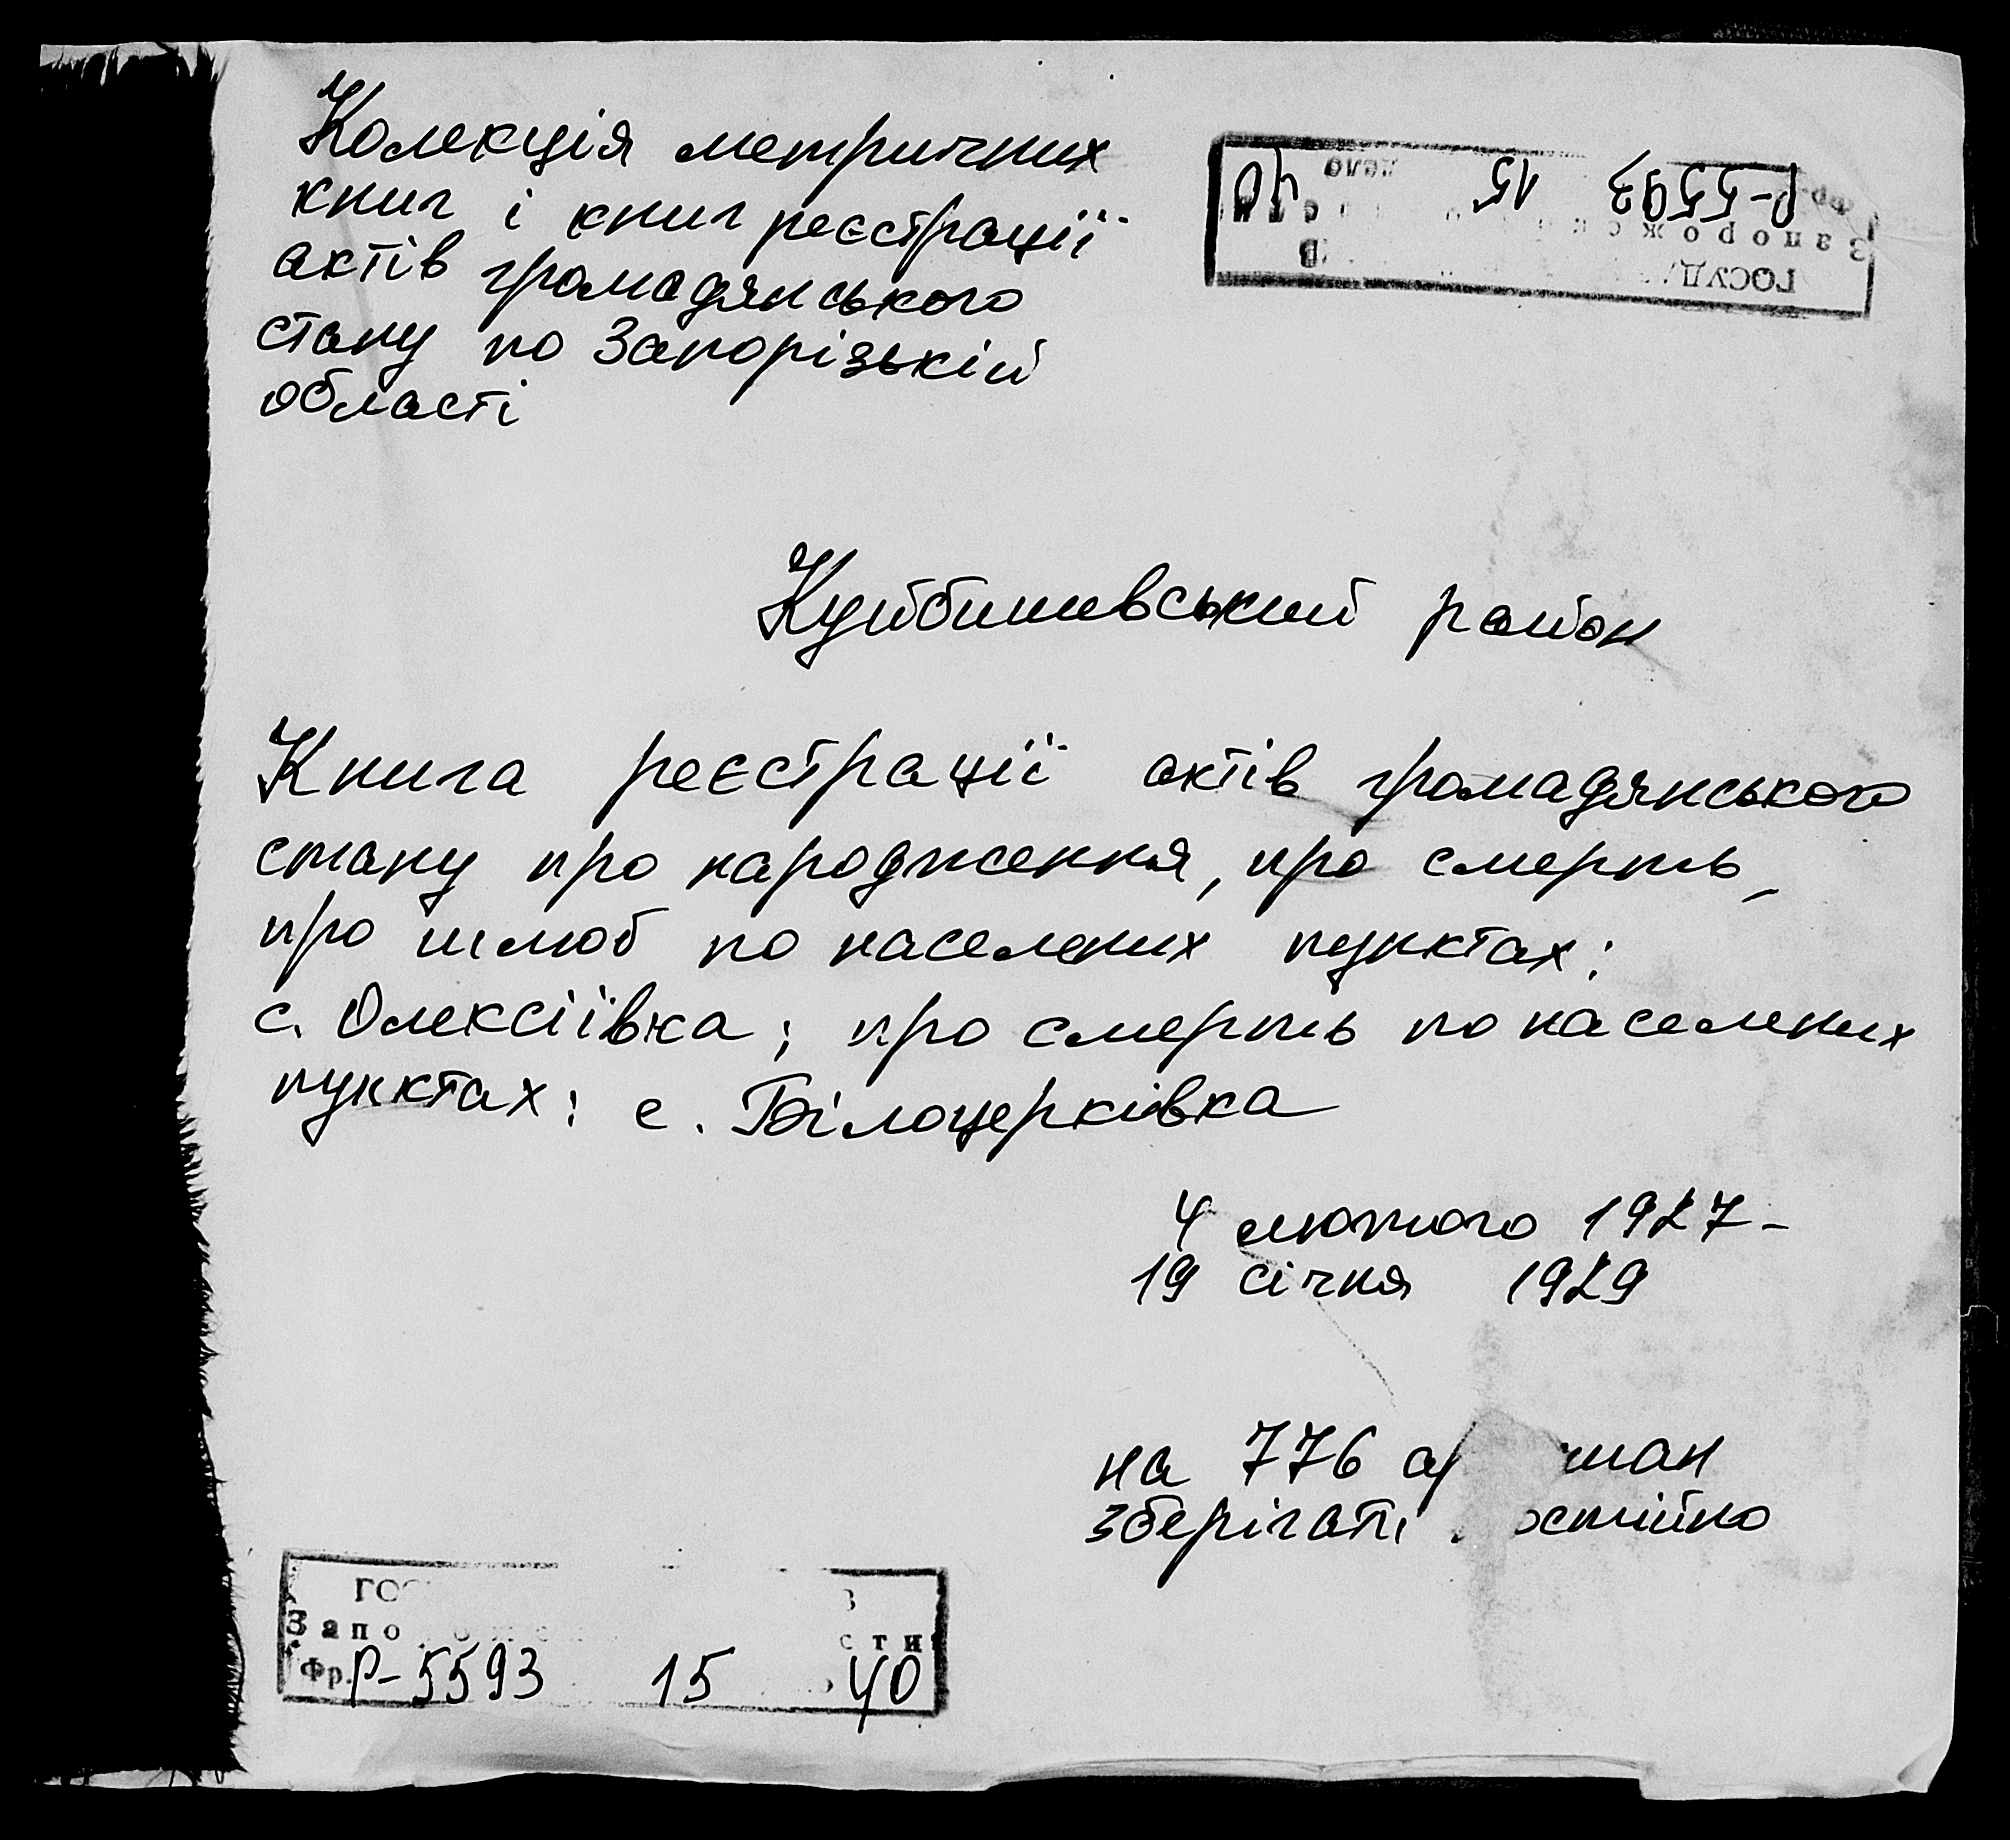 Колекція метричних
книг і книг реєстрації
актів громадянського
стану по Запорізькій
області
Р-5593 15 40
Куйбишевський район
Книга реєстрації актів громадянського
стану про народження, про смерть,
про шлюб по населених пунктах:
с. Олексіївка; про смерть по населених
пунктах: с. Білоцерківка
4 лютого 1927-
19 січня 1929
на 776
зберігати
Фр. Р-5593 15 40